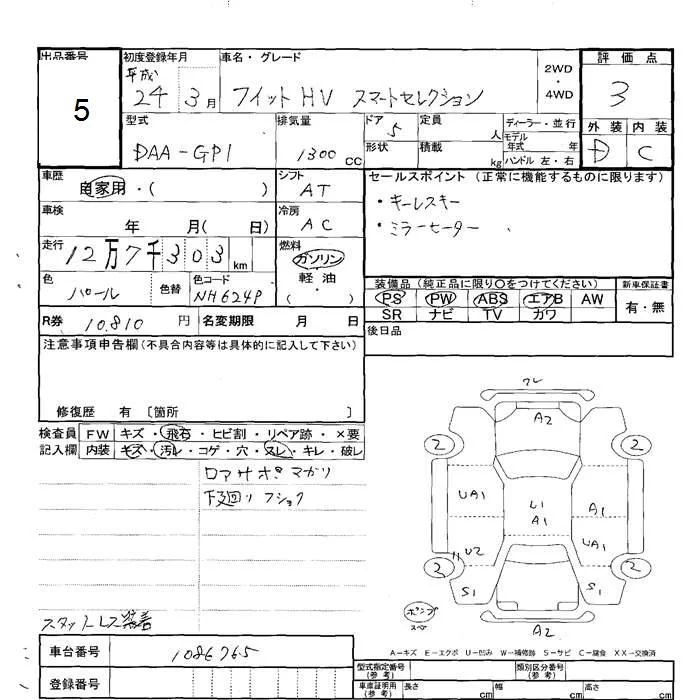 出品番号
5
初度登録年月
平成
24 3月
車名・グレード
フィット HV スマートセレクション
2WD
・
4WD
評価点
3
外装 内装
D C
型式
DAA-GP1
排気量
1300 CC
ドア 5
形状
定員 人
積載 kg
ディーラー・並行
モデル
年式 年
ハンドル 左・右
車歴
自家用・( )
シフト
AT
車検
年 月( 日)
冷房
AC
走行
12万7千303 km
燃料
ガソリン
軽油
( ・ )
色
パール
色替
色コード
NH624P
R券 10.810 円
名変期限 月 日
セールスポイント(正常に機能するものに限ります)
・キーレスキー
・ミラーヒーター
装備品(純正品に限り○をつけてください)
新車保証書
PS PW ABS エアB AW
SR ナビ TV カワ
有・無
後日品
注意事項申告欄(不具合内容等は具体的に記入して下さい)
修復歴 有 〔箇所 〕
検査員
記入欄
FW キズ・飛石・ヒビ割・リペア跡・×要
内装 キズ・汚レ・コゲ・穴・スレ・キレ・破レ
ロアサポ マガリ
下廻り フショク
スタットレス装着
ワレ
A2
2 2
UA1
U1
A1
A1
UA1
U2
2 2
S1 S1
ポンプ
スペ
A2
A-キズ E-エクボ U-凹み W-補修跡 S-サビ C-腐食 XX-交換済
車台番号 1086765
登録番号
型式指定番号
(参考)
類別区分番号
(参考)
車庫証明用
(参考)
長さ cm
幅 cm
高さ cm